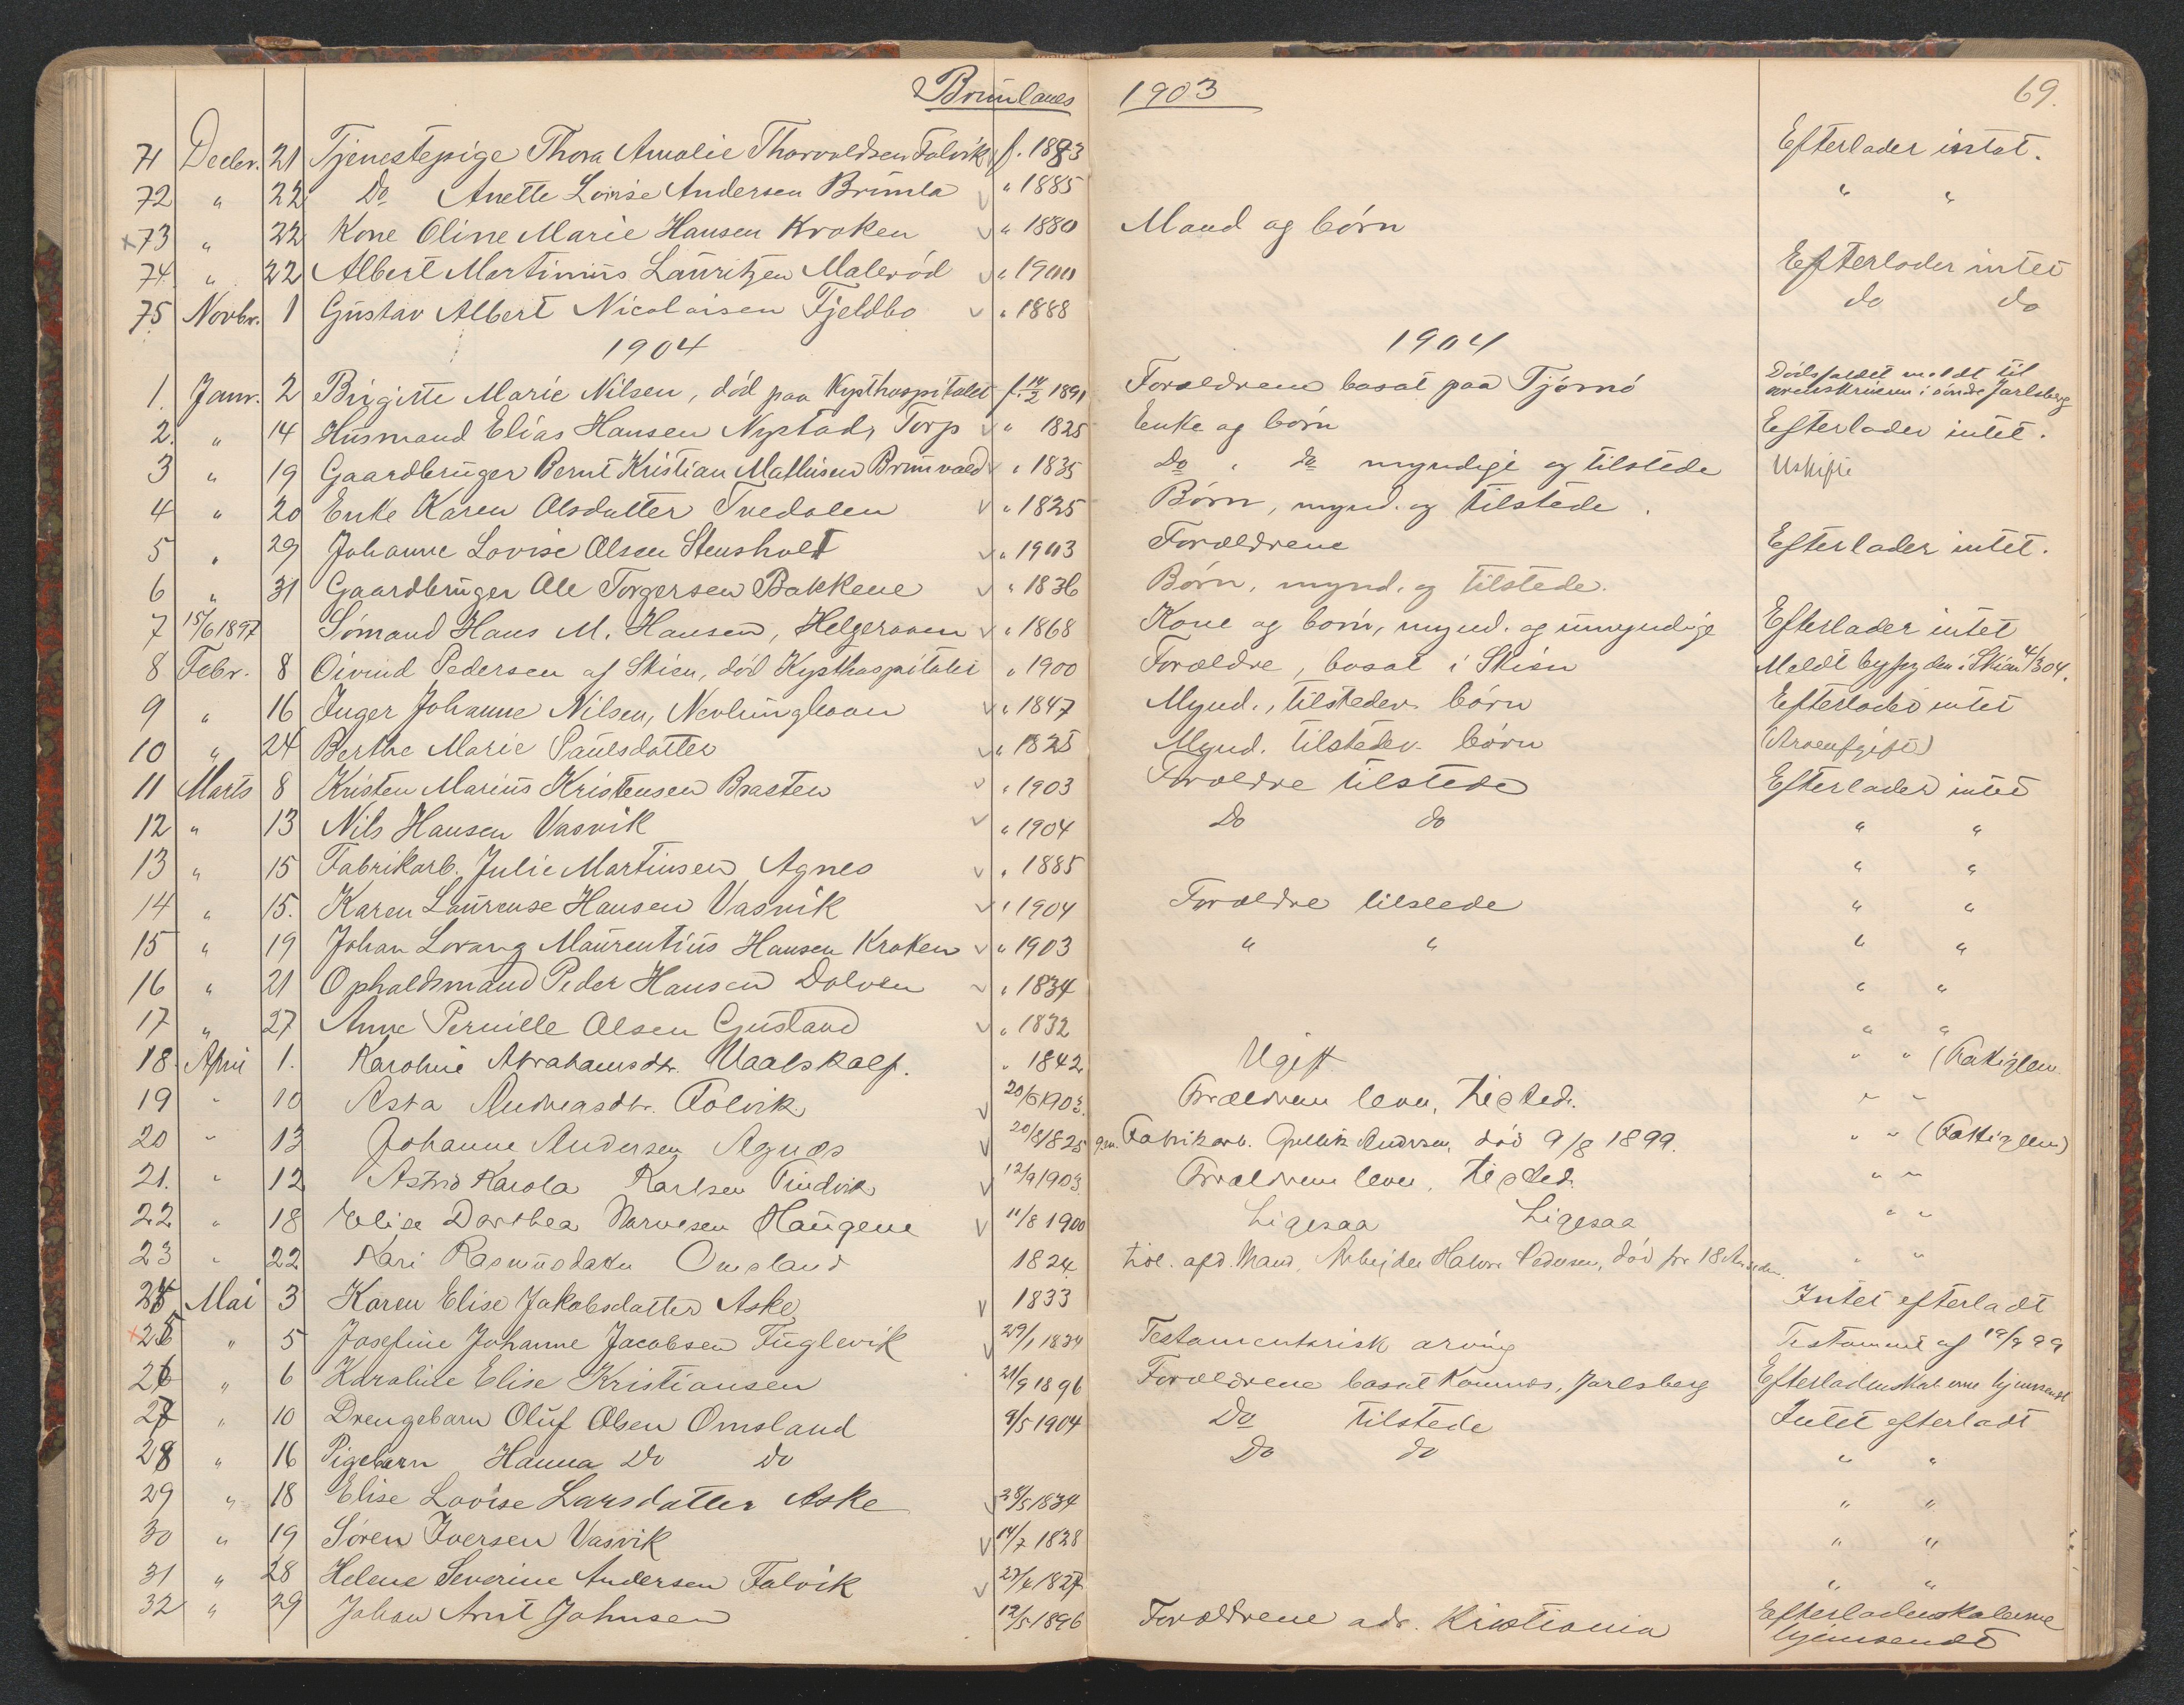 Brunlanes 1903 69.
71 Decbr. 21 Tjenestepige Thora Amalie Thorvaldsen Falvik f. 1883 Efterlader intet.
72 " 22 Do Anette Lovise Andersen Brunla " 1885 " "
73 " 22 Kone Oline Marie Hansen Kroken " 1880 Mand og børn
74 " 22 Albert Martinius Lauritzen Malerød " 1900 Efterlader intet
75 Novbr. 1 Gustav Albert Nicolaisen Fjeldbo " 1888 do do
1904 1904
1. Janr. 2 Brigitte Marie Nilsen, død paa Kysthospitalet f. 14/2 1891 Forældrene bosat paa Tjømø Dødsfaldet meldt til sorenskriveren i søndre Jarlsberg
2. " 14 Husmand Elias Hansen Nystad, Torp " 1825 Enke og børn Efterlader intet.
3 " 19 Gaardbruger Bernt Kristian Mathisen Brunvald " 1835 Do " do myndige og tilstede Uskifte
4 " 20 Enke Karen Olsdatter Tvedalen " 1825 Børn, mynd. og tilstede.
5 " 29 Johanne Lovise Olsen Stensholt " 1903 Forældrene Efterlader intet.
6 " 31 Gaardbruger Ole Torgersen Bakkene " 1836 Børn, mynd. og tilstede.
7 15/6 1897 Sømand Hans M. Hansen, Helgeroaen " 1868 Kone og børn, mynd. og umyndige Efterlader intet
8 Febr. 8 Øivind Pedersen af Skien, død Kysthospitalet " 1900 Forældre, bosat i Skien Meldt byfogden i Skien 4/3 04.
9 " 16 Inger Johanne Nilsen, Nevlunghavn " 1847 Mynd., tilstedev. børn Efterlader intet
10 " 24 Berthe Marie Paulsdatter " 1825 Mynd. tilstedev. børn (Arveafgift)
11 Marts 8 Kristen Marius Kristensen Braaten " 1903 Forældre tilstede Efterlader intet
12 " 13 Nils Hansen Vasvik " 1904 Do do " "
13 " 15 Fabrikarb. Julie Martinsen Agnes " 1885 " "
14 " 15. Karen Laurense Hansen Vasvik " 1904 Forældre tilstede " "
15 " 19 Johan Lorang Maurentius Hansen Kroken " 1903 " " " "
16 " 21 Opholdsmand Peder Hansen Dolven " 1834 " "
17 " 27 Anne Pernille Olsen Gustand " 1832 " "
18. April 1. Karoline Abrahamsdtr. Vaalskalf. " 1842 Ugift " " (Fattiglem
19 " 10 Asta Andreasdtr. Falvik. 20/6 1903. Forældrene lever, tilsted. " "
20 " 13 Johanne Andersen Agnæs 20/8 1825 gm. Fabrikarb. Gullik Andersen, død 9/8 1899. " " (Fattiglem)
21. " 12 Astrid Karola Karlsen Tindvik 12/9 1903. Forældrene lever, tilsted. " "
22 " 18 Elise Dorthea Narvesen Haugene 11/8 1900 Ligesaa Ligesaa " "
23 " 22 Kari Rasmusdatter Omsland 1824. tidl. afd. Mand, Arbejder Halvor Pedersen, død for 18 Aar siden. " "
24 Mai 3 Karen Elise Jakobsdatter Aske 1833 Intet efterladt
25 " 5 Josefine Johanne Jacobsen Fuglevik 29/1 1834 Testamentarisk arving Testament af 19/9 99
26 " 6 Karoline Elise Kristiansen 21/9 1896 Forældrene bosat Ramnæs, Jarlsberg Efterladenskaberne hjemsendt
27 " 10 Drengebarn Oluf Olsen Omsland 9/5 1904 Do tilstede Intet efterladt
28 " 16 Pigebarn Hanna Do do Do do " "
29 " 18 Elise Lovise Larsdatter Aske 28/5 1834 " "
30 " 19 Søren Iversen Vasvik 14/7 1828 " "
31 " 28 Helene Severine Andersen Falvik 27/4 1827 " "
32 " 29 Johan Arnt Johnsen 12/5 1896 Forældrene adr. Kristiania Efterladenskaberne hjemsendt